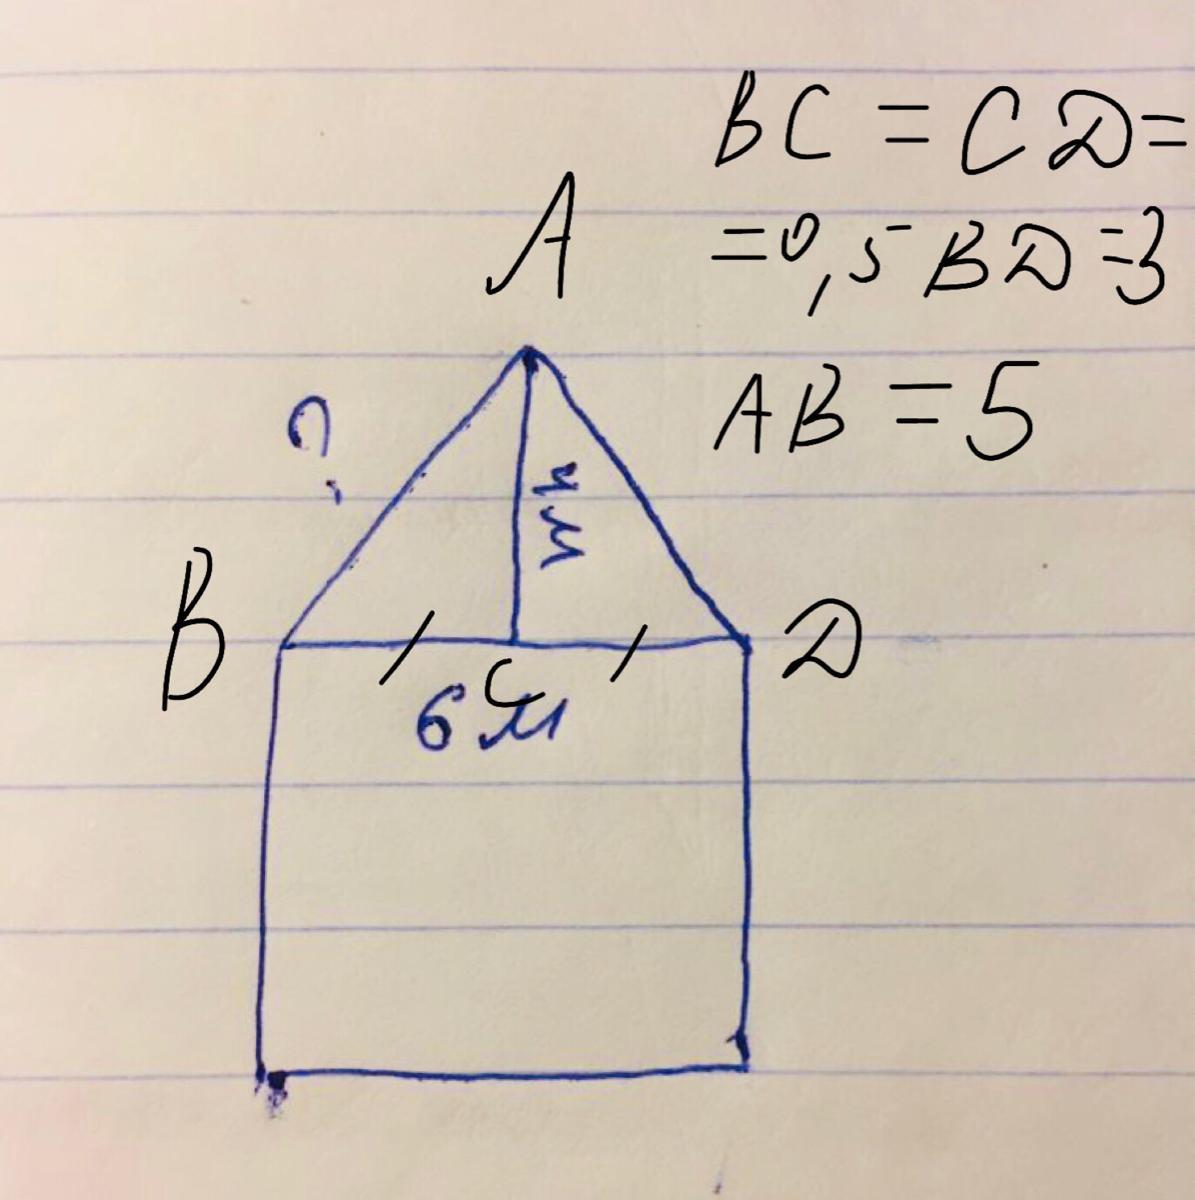 BC = CD =
= 0,5 BD = 3
A
AB = 5
?
4 м
B
C
D
6 м